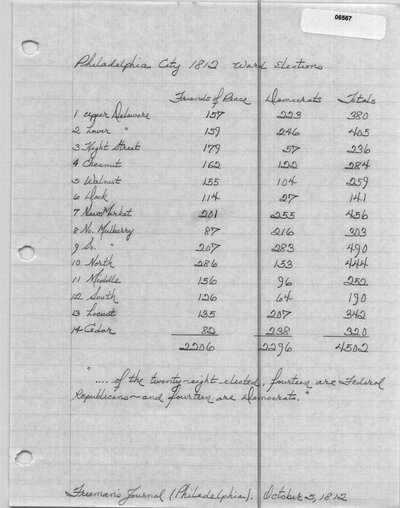 06567
Philadelphia City 1812 Ward Elections
Friends of Peace Democrats Totals
1 Upper Delaware 157 223 380
2 Lower " 159 246 405
3 Hight Street 179 57 236
4 Chesnut 162 122 284
5 Walnut 155 104 259
6 Dock 114 27 141
7 New Market 201 255 456
8 No. Mulberry 87 216 303
9 So. " 207 283 490
10 North 286 153 444
11 Middle 156 96 252
12 South 126 64 190
13 Locust 135 207 342
14 Cedar 82 238 320
2206 2296 4502
".... of the twenty-eight elected, fourteen are Federal
Republicans - and fourteen are Democrats."
Freeman's Journal (Philadelphia). October 5, 1812